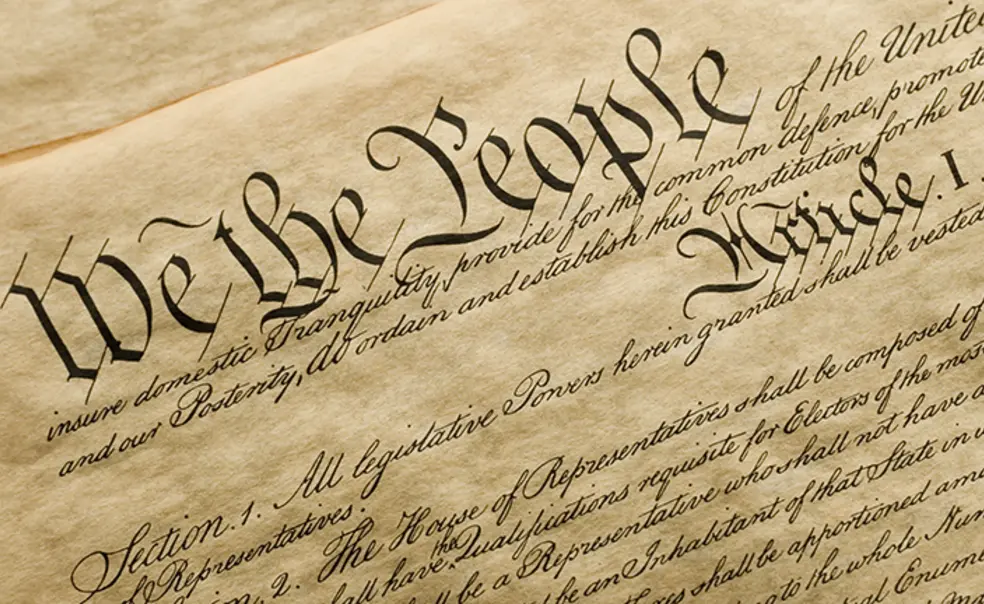 We the People of the United
insure domestic Tranquility, provide for the common defence, promote
and our Posterity, do ordain and establish this Constitution for the Un
Article. I.
Section. 1. All legislative Powers herein granted shall be vested
of Representatives.
2. The House of Representatives shall be composed of
the
all have Qualifications requisite for Electors of the most
ll be a Representative who shall not have a
be an Inhabitant of that State in w
shall be apportioned am
to the whole Num
Enume